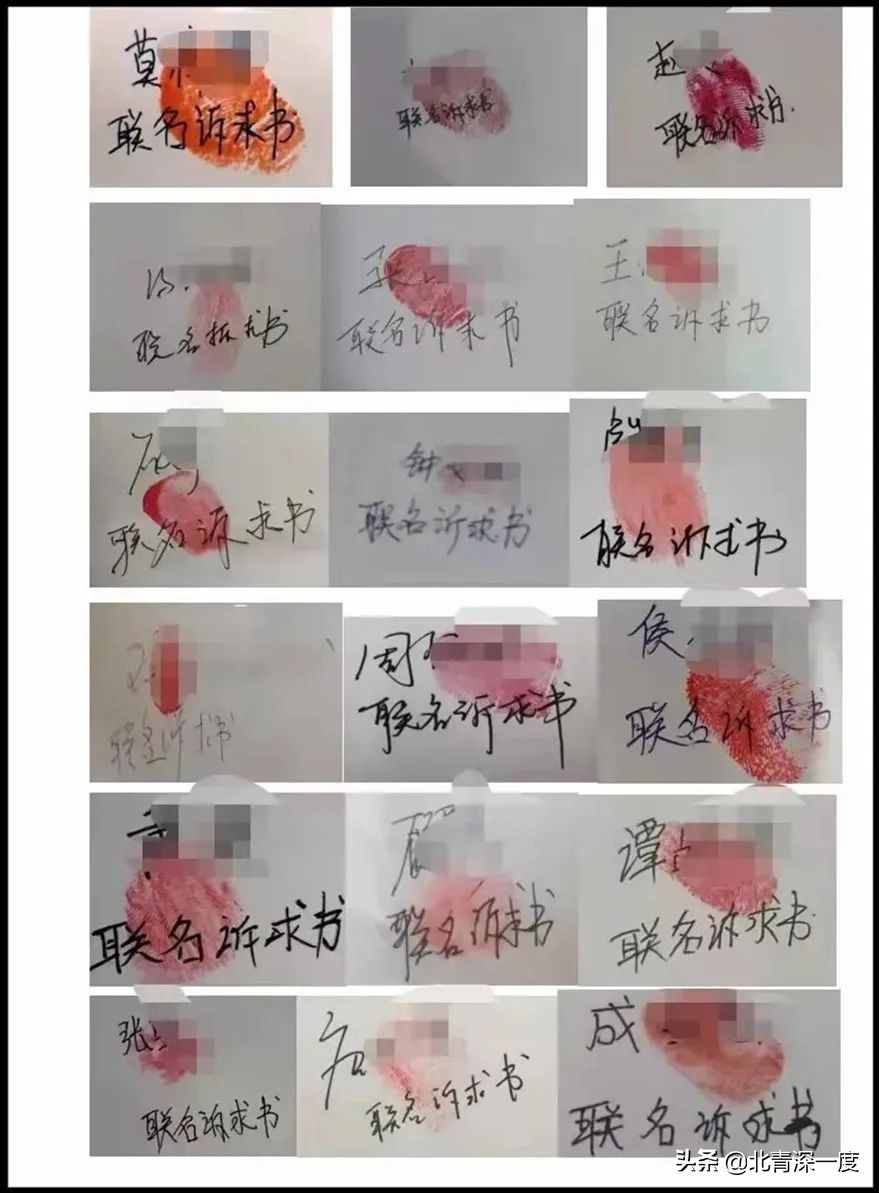 莫
联名诉求书
联名诉求书
赵
联名诉求书
冯
联名诉求书
张
联名诉求书
王
联名诉求书
联名诉求书
钟
联名诉求书
联名诉求书
联名诉求书
周
联名诉求书
侯
联名诉求书
联名诉求书
联名诉求书
谭
联名诉求书
张
联名诉求书
联名诉求书
成
联名诉求书
头条 @北青深一度